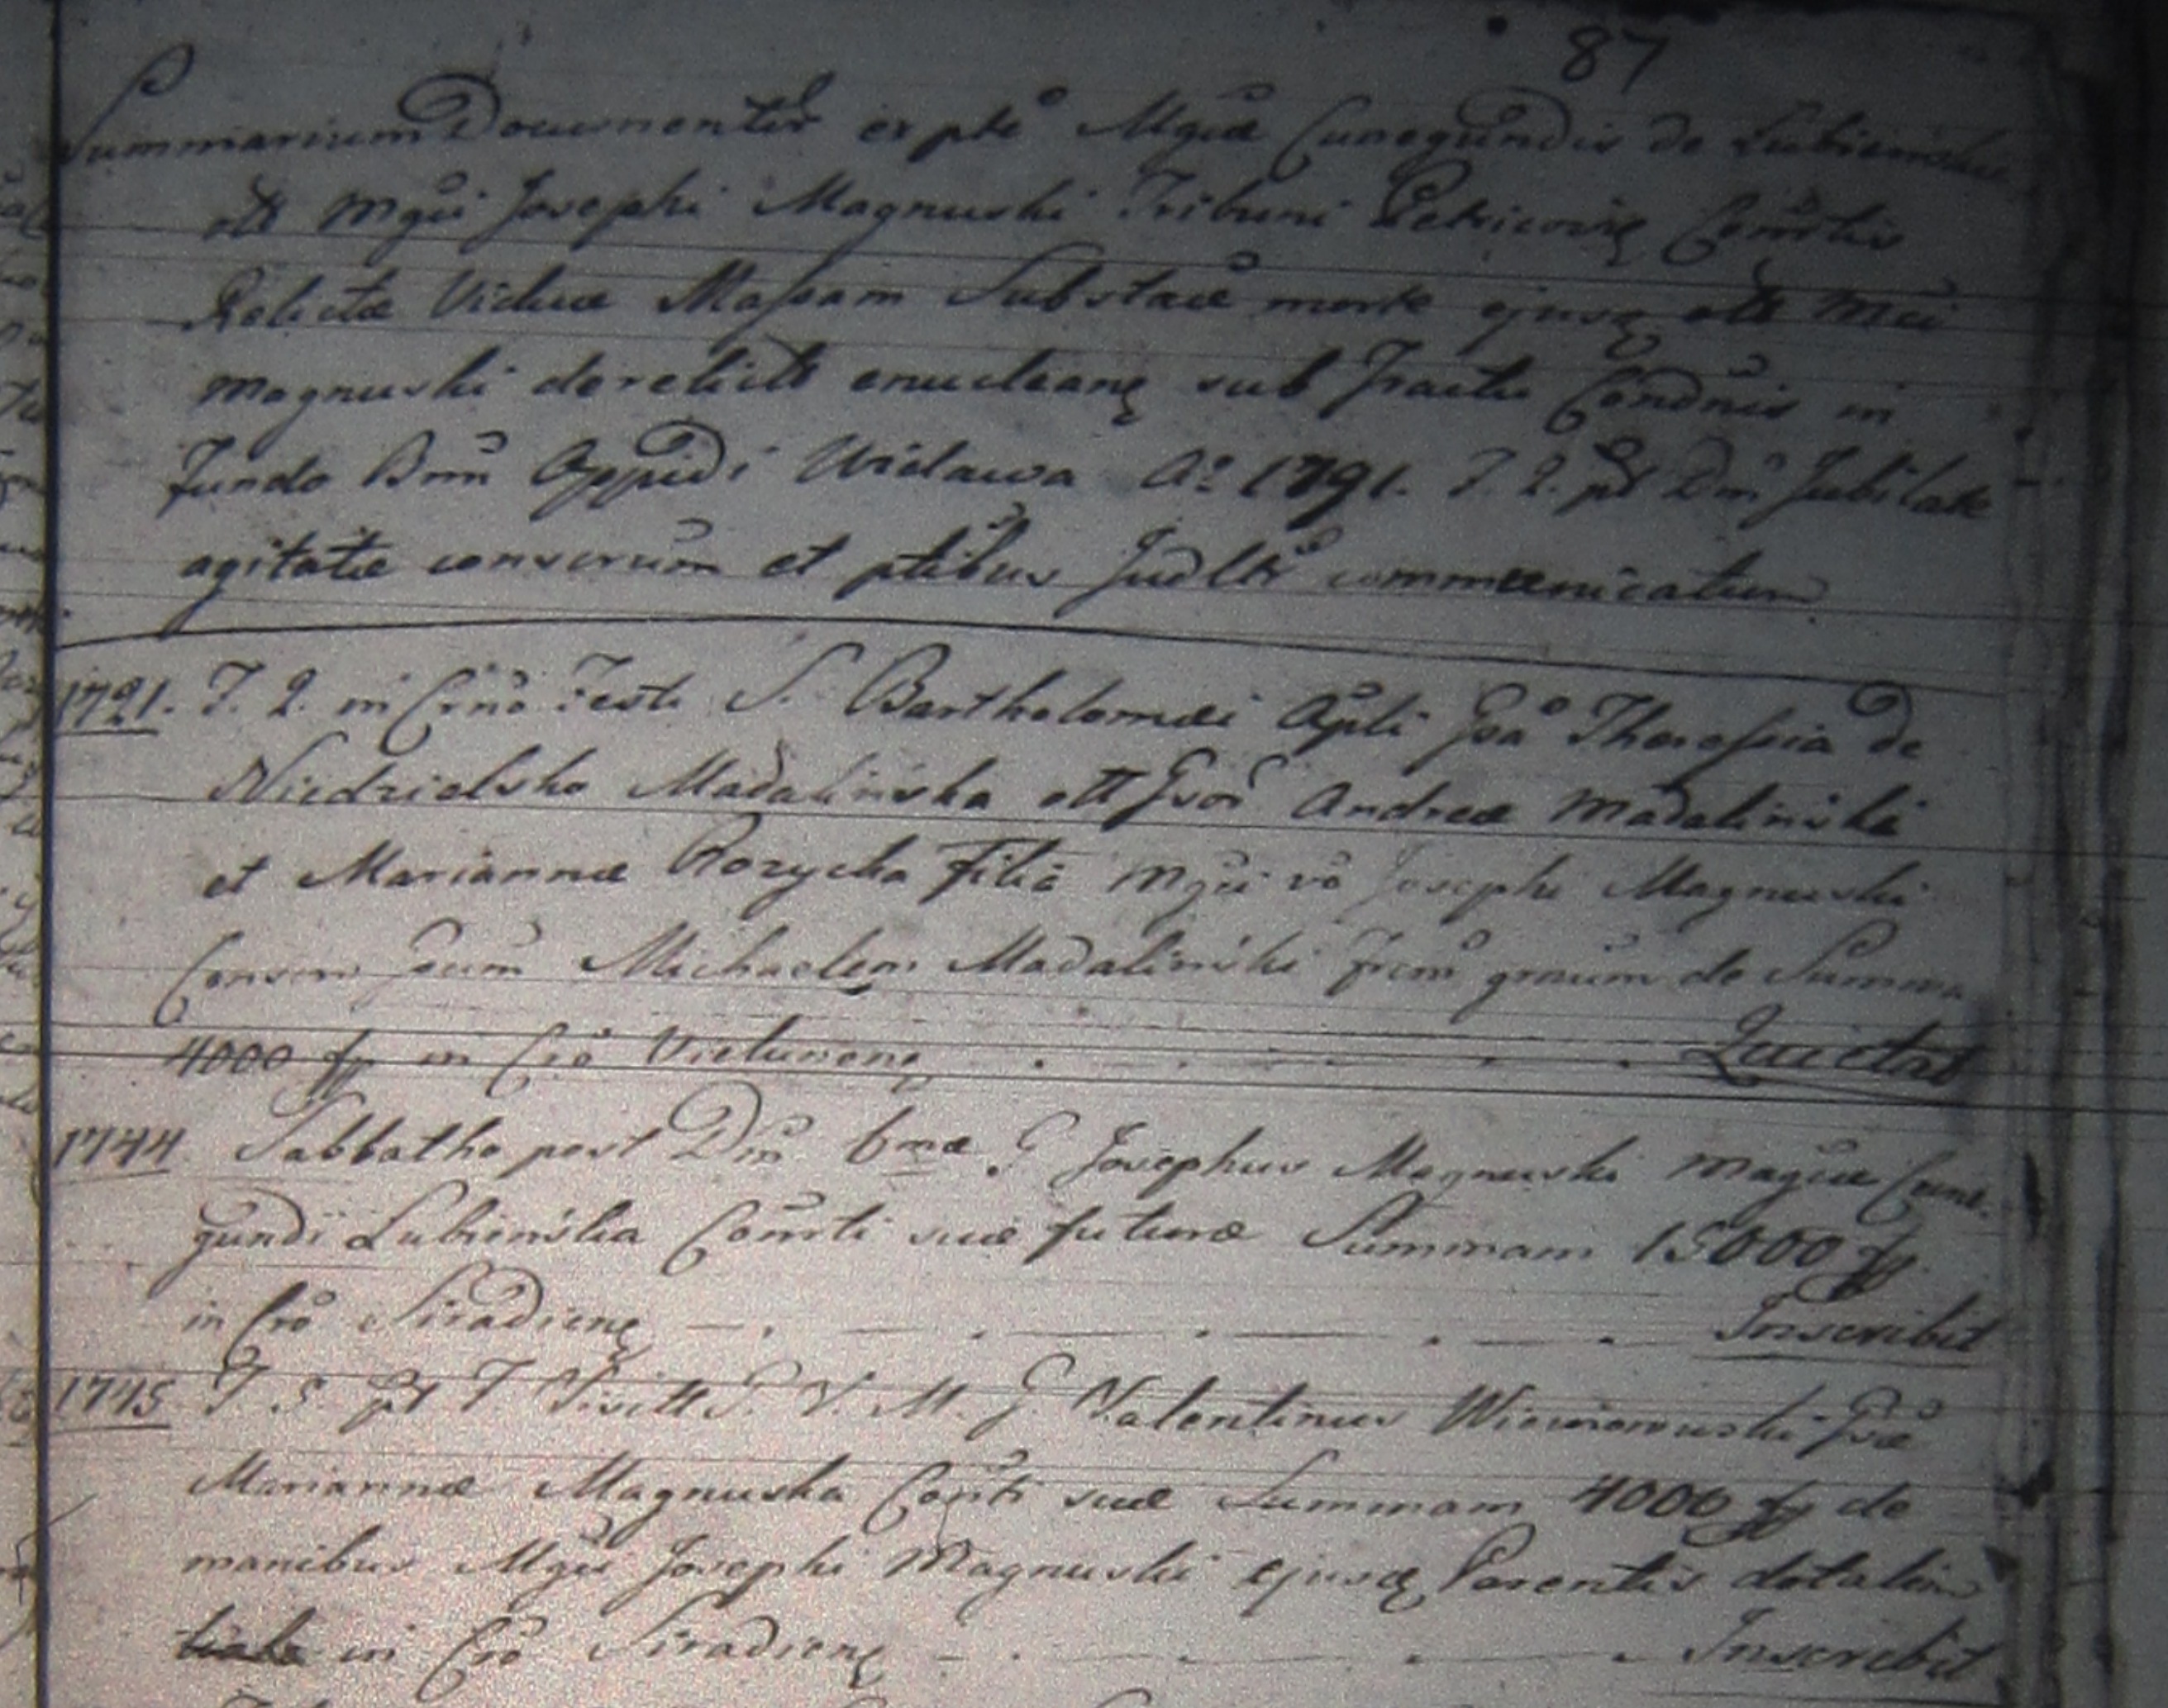 87
Summarium Documentor ex pte Mgcae Cunegundis de Lubienskie
olt Mgci Josephi Magnuski Tribuni Petricovie Consortis
Relictae Viduae Massam Substae morte ejusq olt Mci
Magnuski derelict enucleanq sub Tractu Condnis in
fundo Bnm Oppidi Widawa Ao 1791. F. 2. pt Dm Jubilate
agitatae conscrum et ptibus Judltr communicatum
1721. F. 2. in Crno Festi S. Bartholomaei Apli Gsa Theressia de
Niedzielsko Madalinska olt Gsor Andreae Madalinski
et Mariannae Rozycka filia Mgci vo Josephi Magnuski
Consors Gsum Michaelem Madalinski frem gnum de Summa
4000 fp in Cro Vielunenq Quietat
1744 Sabbatho post Dm 6nae G Josephus Magnuski Magcae Cune-
gundi Lubienska Comti suae futurae Summam 15000 fp
in Cro Siradienq Inscribit
1745 F 5. pt F Visitt S. V. M. G Valentinus Gsae
Mariannae Magnuska Conti suae Summam 4000 fp de
manibus Mgci Josephi Magnuski ejusq Parentis dotalem
in Cro Siradienq Inscribit